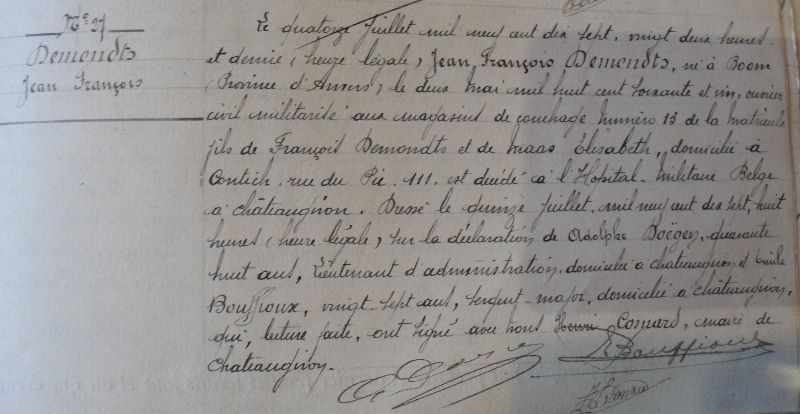 N° 27
Demondts
Jean François
Le quatorze juillet mil neuf cent dix sept, vingt deux heures
et demie (heure légale) Jean François Demondts, né à Boom
(Province d'Anvers) le deux mai mil huit cent soixante et un, ouvrier
civil militarisé aux magasins de couchage numéro 13 de la matricule
fils de François Demondts et de Maas Élisabeth, domicilié à
Contich rue du Pie 111. est décédé à l'Hopital Militaire Belge
à Châteaugiron. Dressé le quinze juillet, mil neuf cent dix sept, huit
heures (heure légale) sur la déclaration de Adolphe Doëgen, quarante
huit ans, Lieutenant d'administration, domicilié à Châteaugiron et Emile
Bouffioux, vingt-sept ans, sergent-major, domicilié à Châteaugiron,
qui, lecture faite, ont signé avec nous Henri Comard, maire de
Chateaugiron.
E Bouffioux